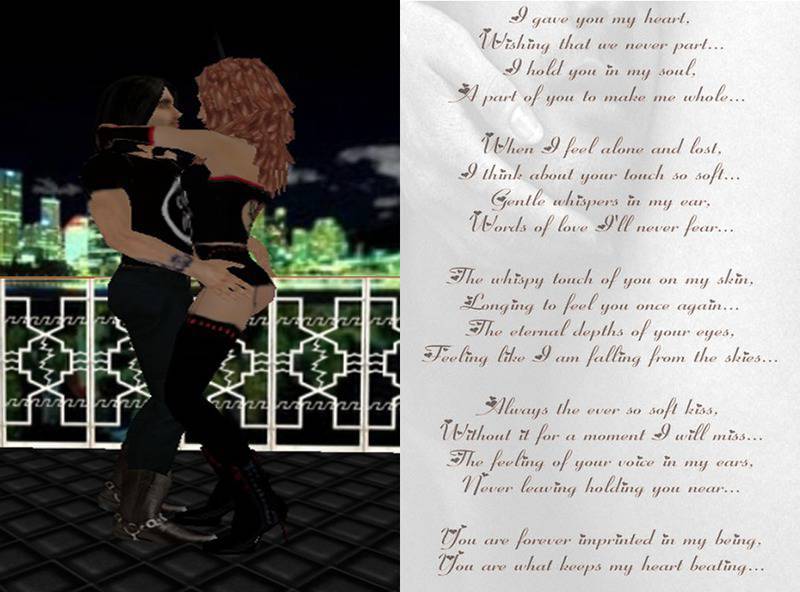 I gave you my heart,
Wishing that we never part...
I hold you in my soul,
A part of you to make me whole...
When I feel alone and lost,
I think about your touch so soft...
Gentle whispers in my ear,
Words of love I'll never fear...
The whispy touch of you on my skin,
Longing to feel you once again...
The eternal depths of your eyes,
Feeling like I am falling from the skies...
Always the ever so soft kiss,
Without it for a moment I will miss...
The feeling of your voice in my ears,
Never leaving holding you near...
You are forever imprinted in my being,
You are what keeps my heart beating...